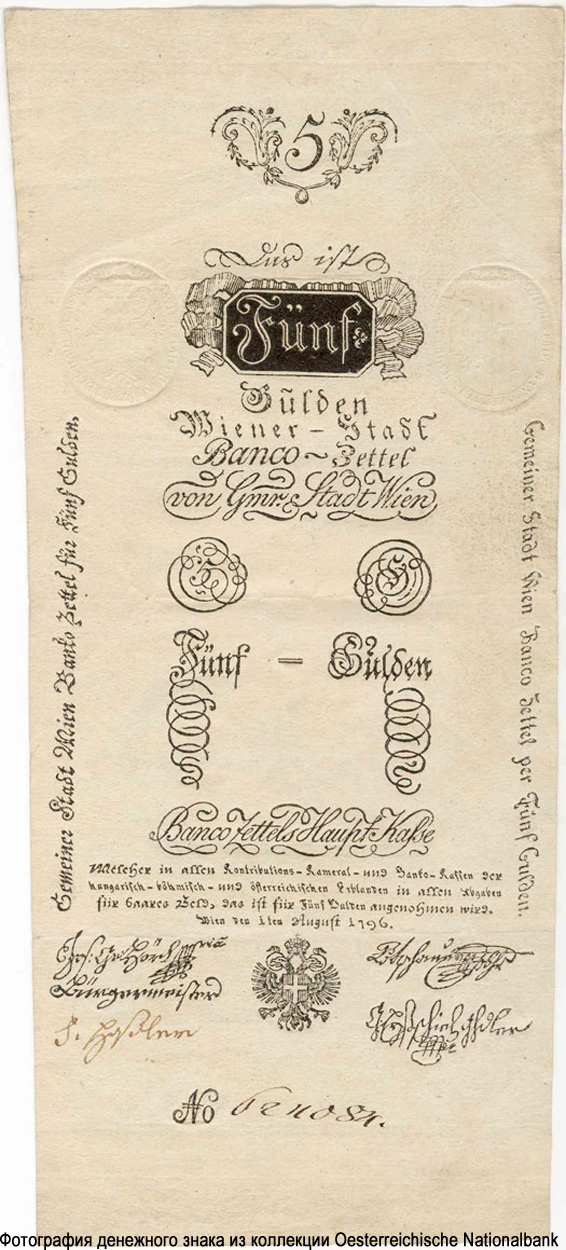 5
Das ist
Fünf
Gulden
Wiener-Stadt
Banco~Zettel
von Gmr. Stadt Wien
Gemeiner Stadt Wien Banko Zettel für Fünf Gulden.
Gemeiner Stadt Wien Banco Zettel per Fünf Gulden.
Fünf — Gulden
Banco Zettels Haupt-Kasse
Welcher in allen Kontributions-Kameral-und Banko-Kassen der
hungarisch-böhmisch-und österreichischen Erblanden in allen Abgaben
für baares Geld, das ist für Fünf Gulden angenohmen wird.
Wien den 1ten August 1796.
Bürgermeister
No
Фотография денежного знака из коллекции Oesterreichische Nationalbank